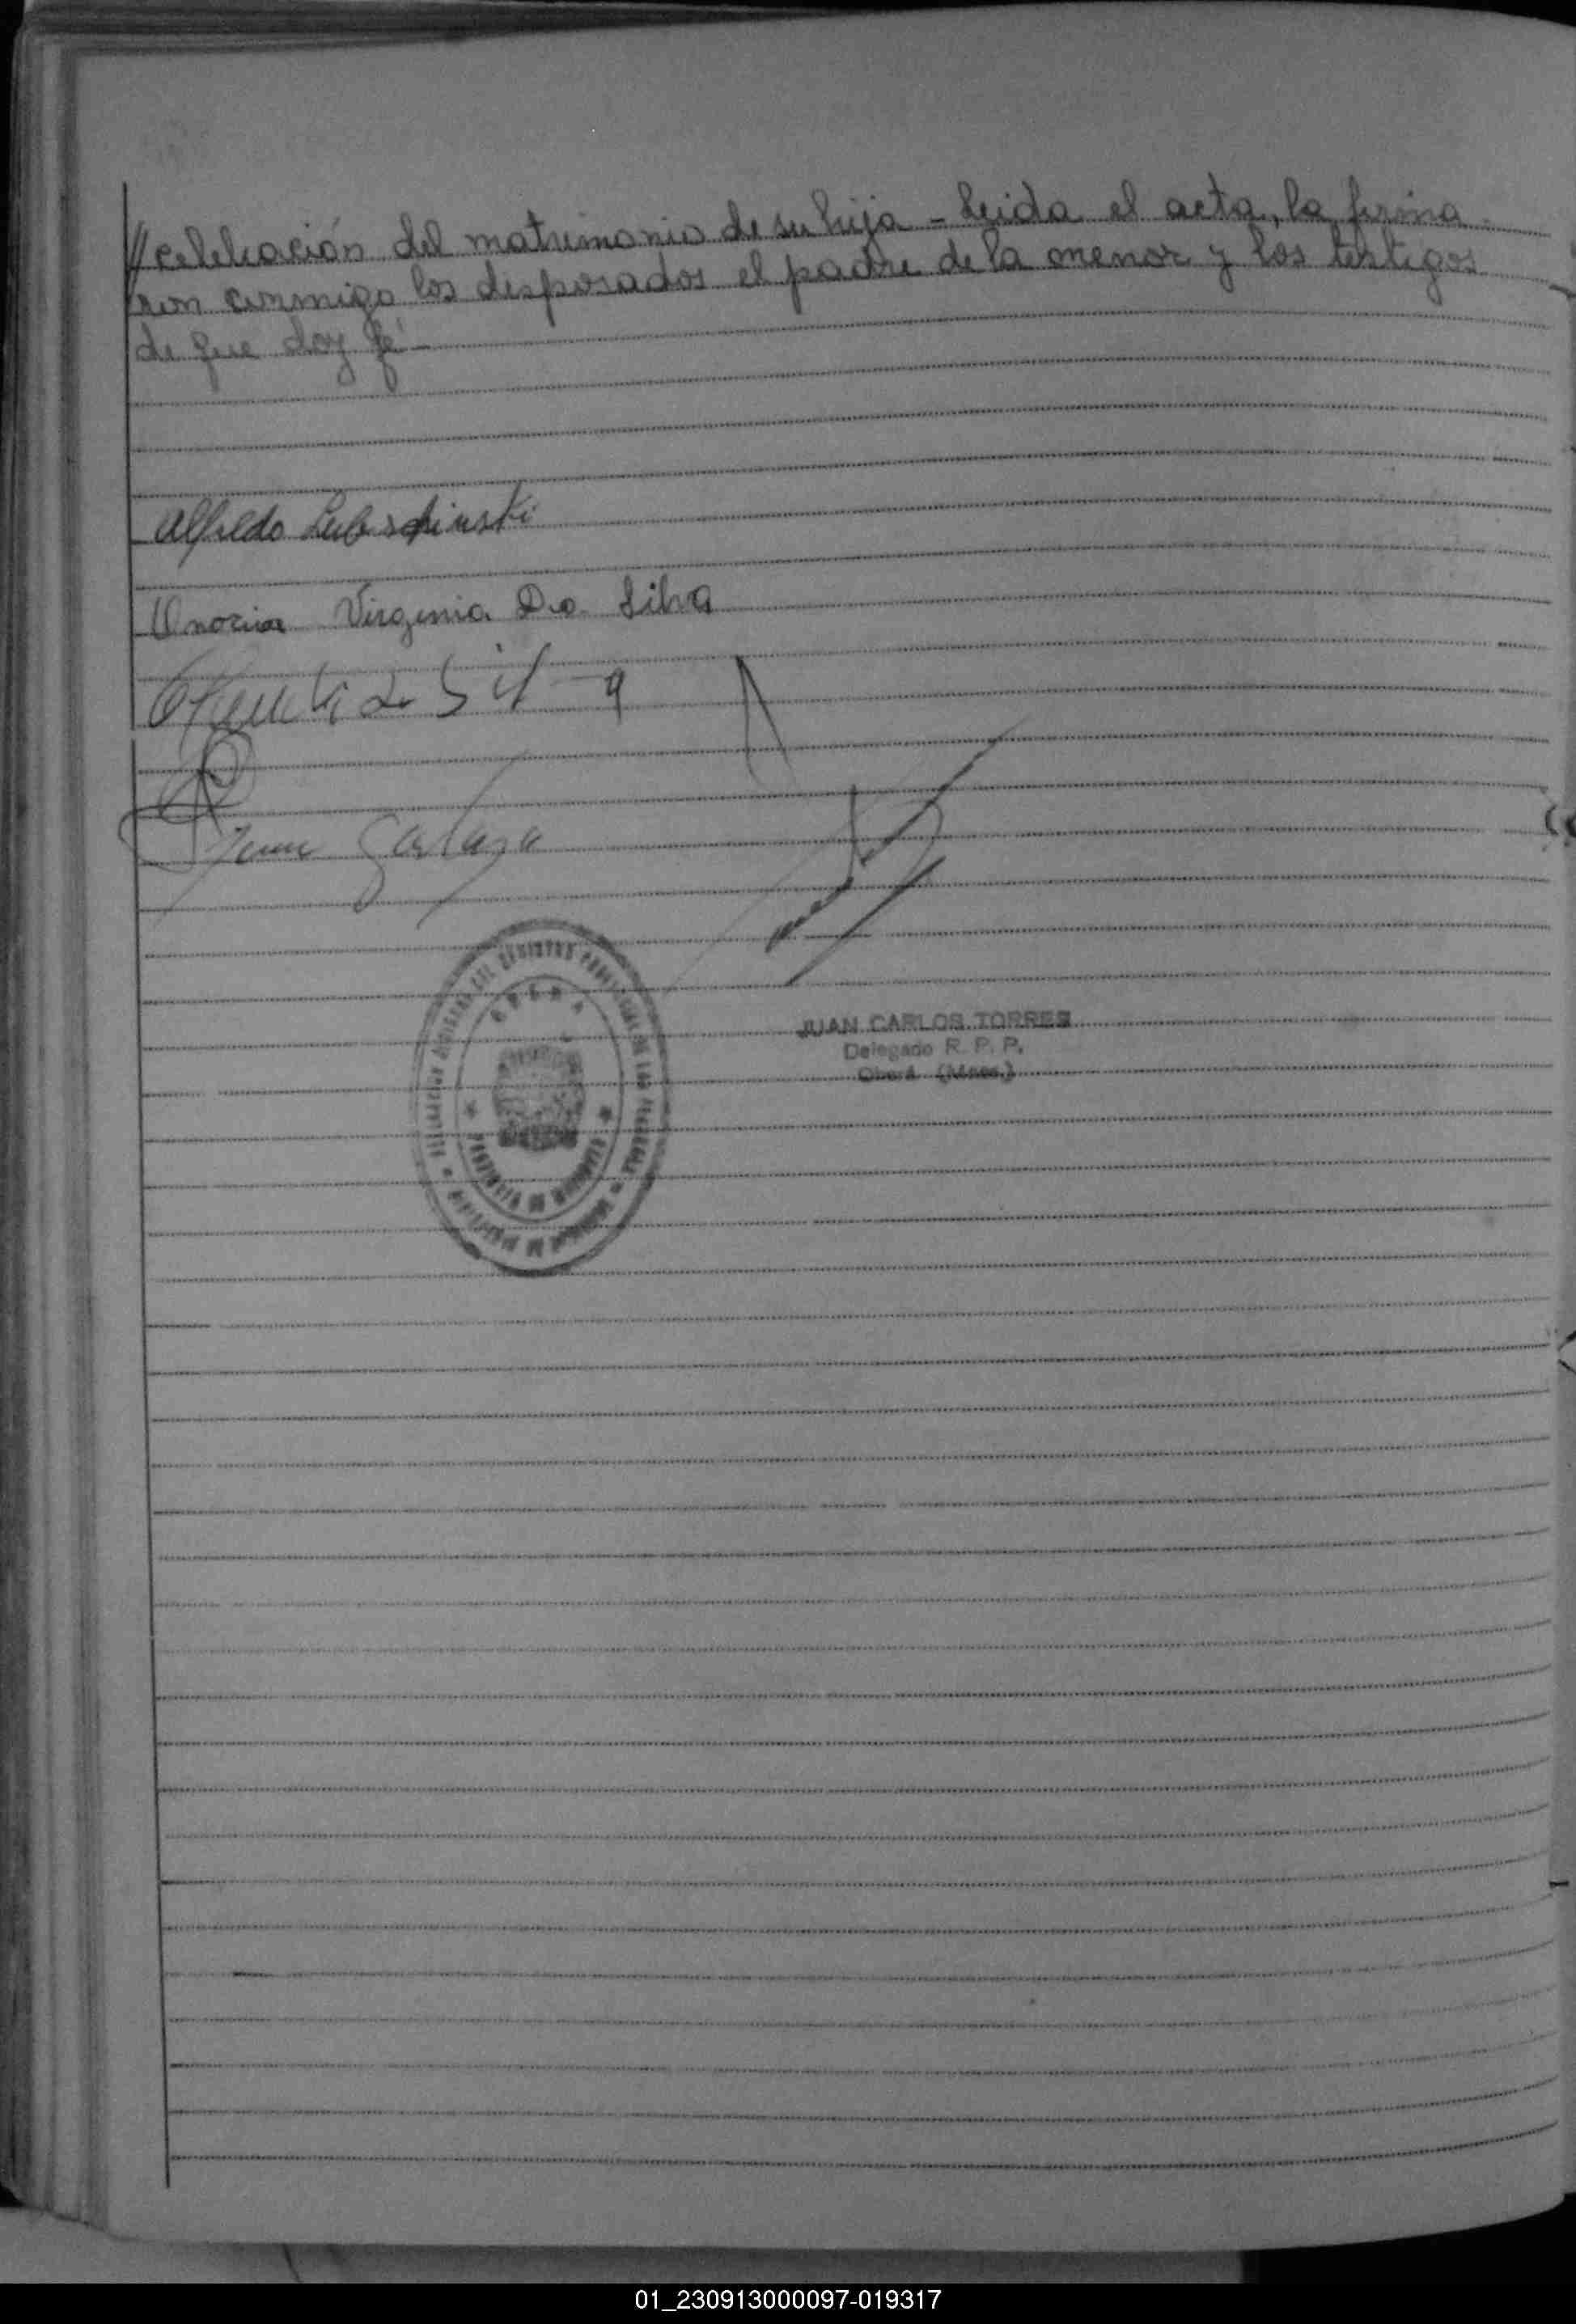 //celebración del matrimonio de su hija - Leida el acta, la firma
ron conmigo los desposados el padre de la menor y los testigos
de que doy fé -
Alfredo Lubschinski
Onoria Virginia Da Silva
da Silva
JUAN CARLOS TORRES
Delegado R. P. P.
Oberá (Mnes.)
OBERA
PROVINCIA DE MISIONES
01_230913000097-019317